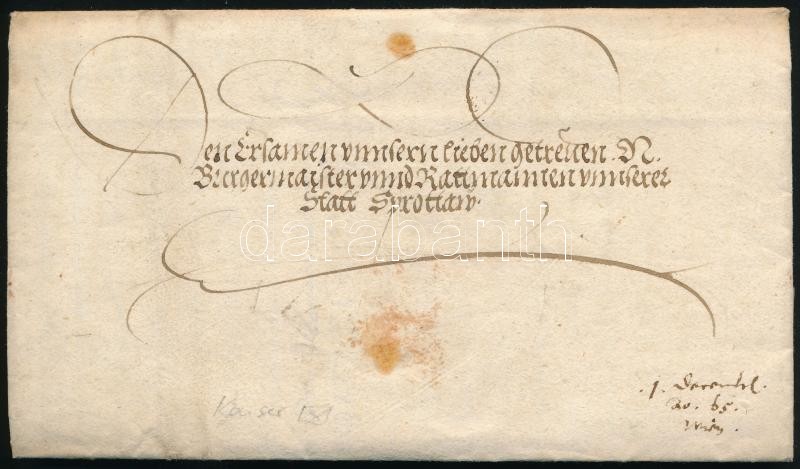 Den Ersamen vnnsern lieben getreüen .N.
Burgermaister vnnd Rattmannen vnnserer
Statt Sprottaw.
darabanth
.1. Decembr.
ao. 65.
Wien.
Kaiser